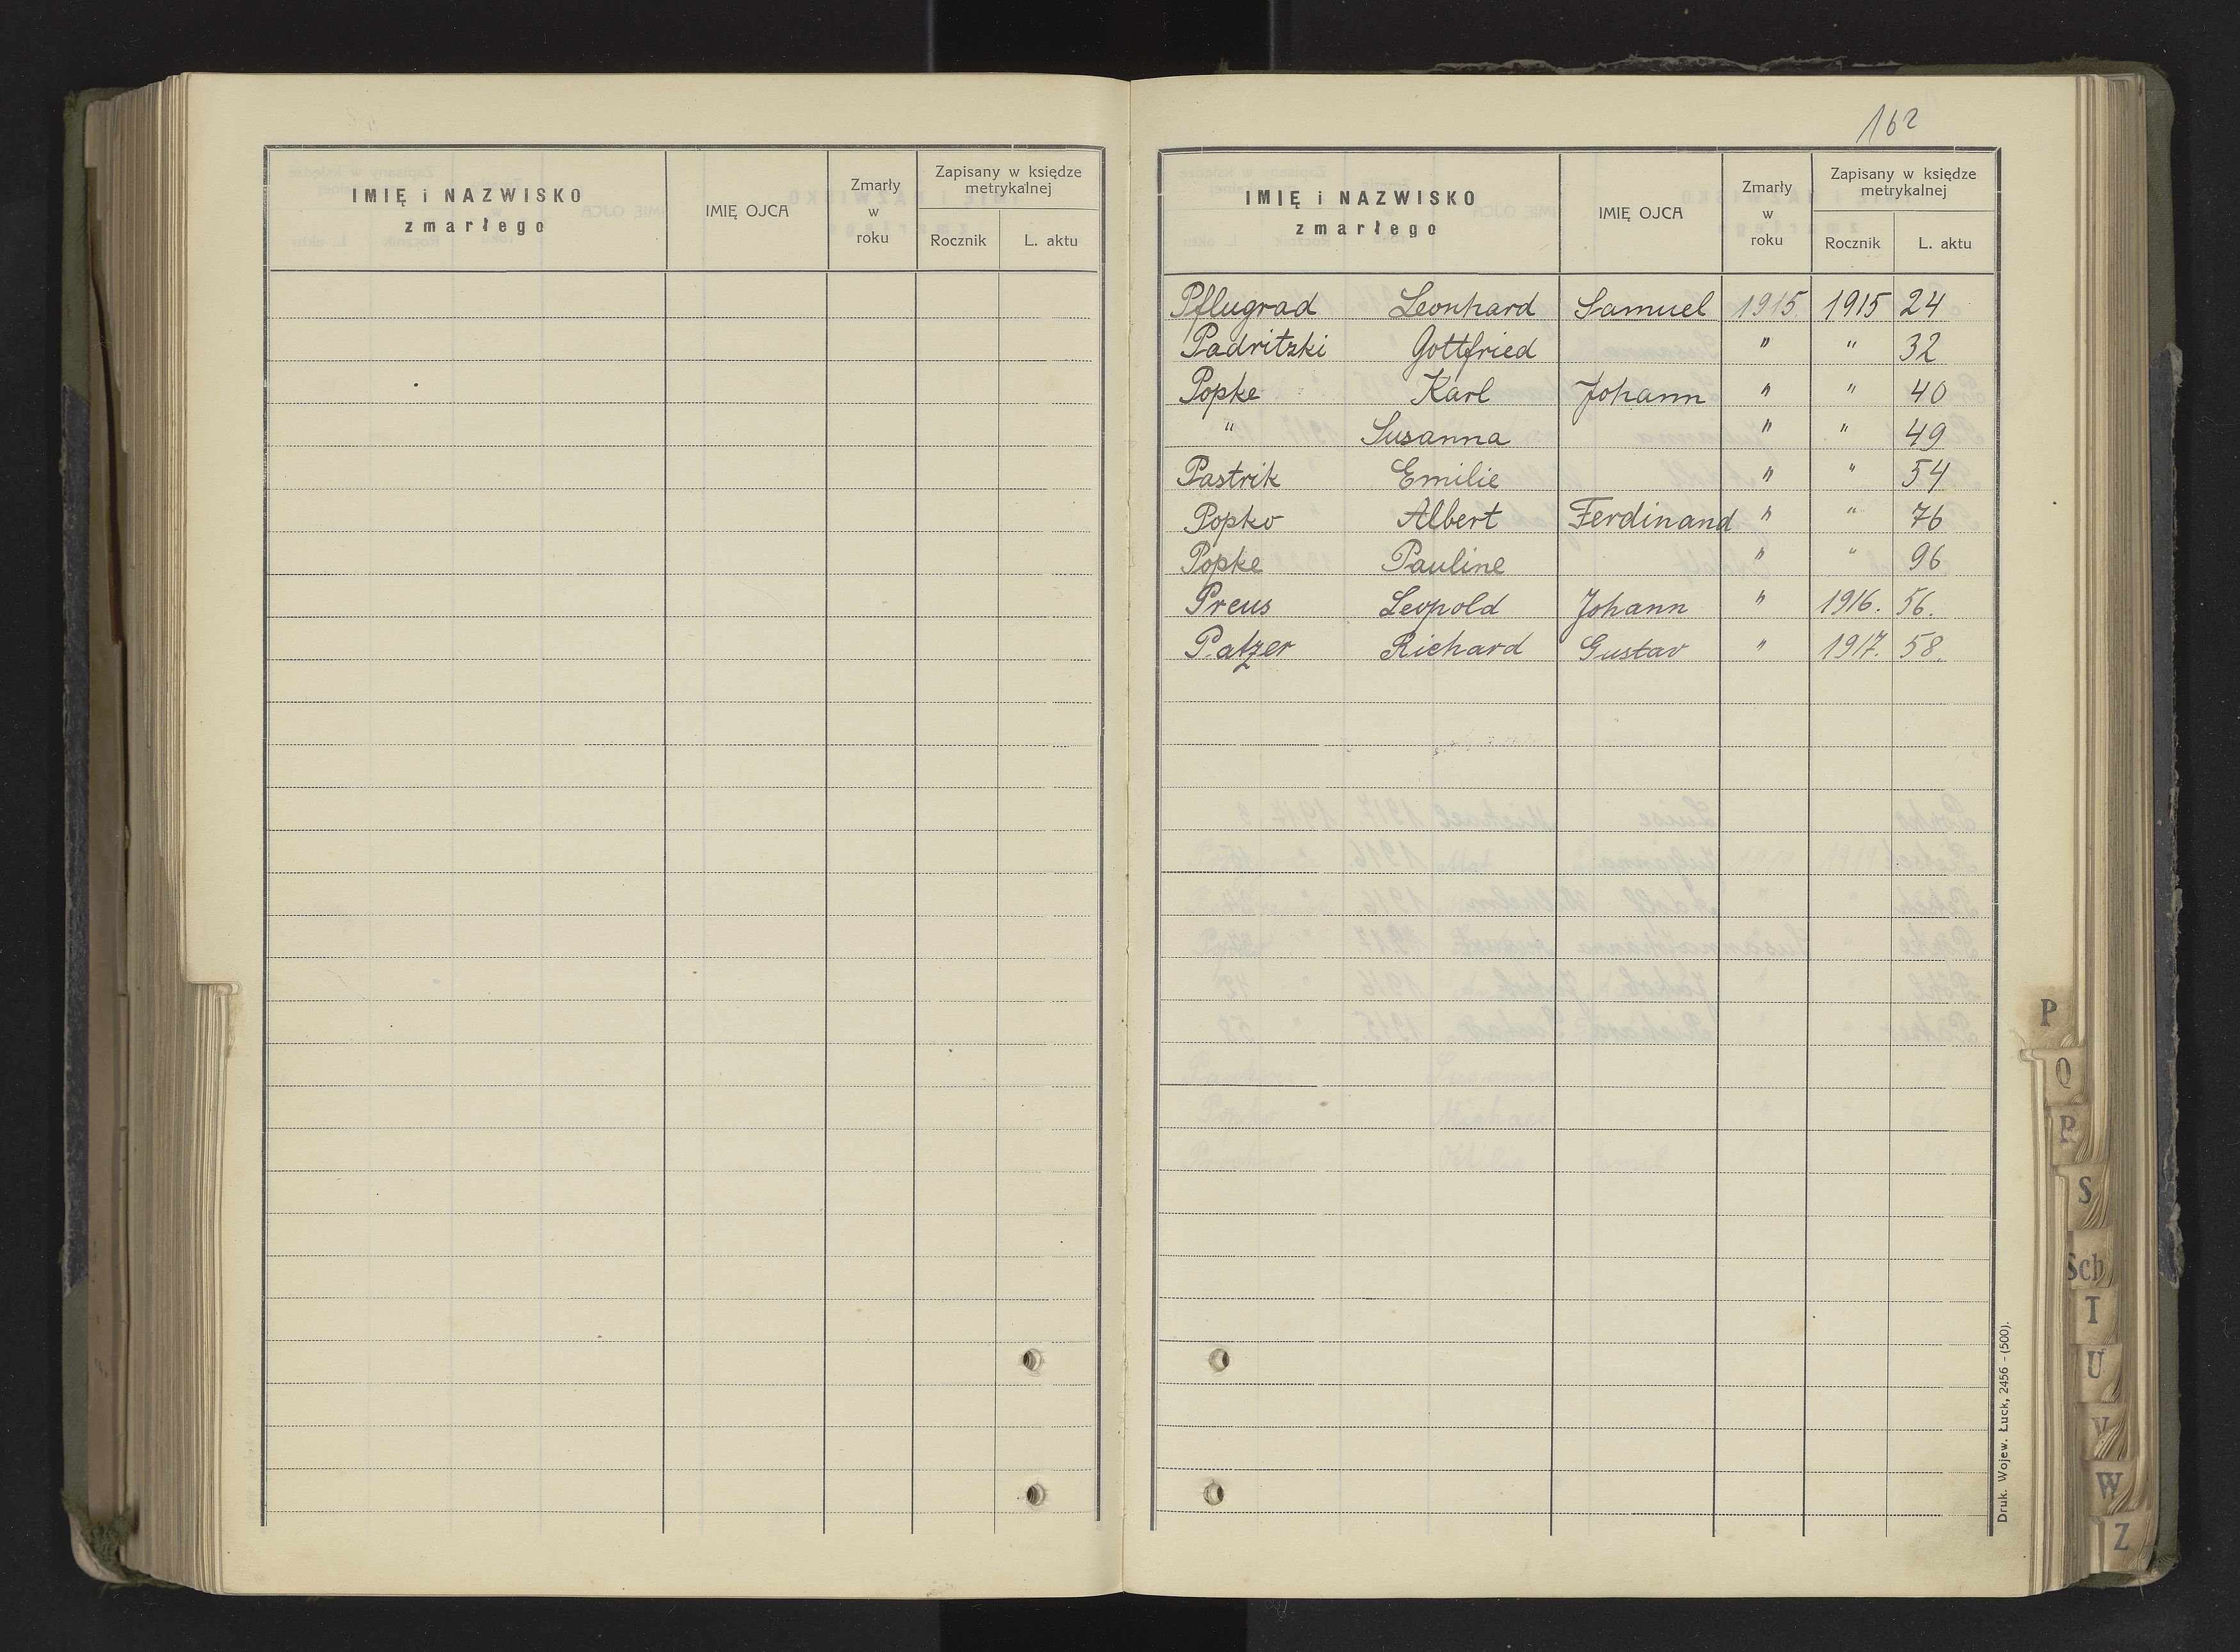 IMIĘ i NAZWISKO
zmarłego
IMIĘ OJCA
Zmarły
w
roku
Zapisany w księdze
metrykalnej
Rocznik
L. aktu
162
IMIĘ i NAZWISKO
zmarłego
IMIĘ OJCA
Zmarły
w
roku
Zapisany w księdze
metrykalnej
Rocznik
L. aktu
Pflugrad Leonhard Samuel 1915 1915 24
Padritzki Gottfried " " 32
Popke Karl Johann " " 40
" Susanna " " 49
Pastrik Emilie " " 54
Popko Albert Ferdinand " " 76
Popke Pauline " " 96
Preus Leopold Johann " 1916. 56.
Patzer Richard Gustav " 1917. 58.
P
Q
R
S
Sch
T
U
V
W
Z
Druk. Wojew. Łuck, 2456 - (500).